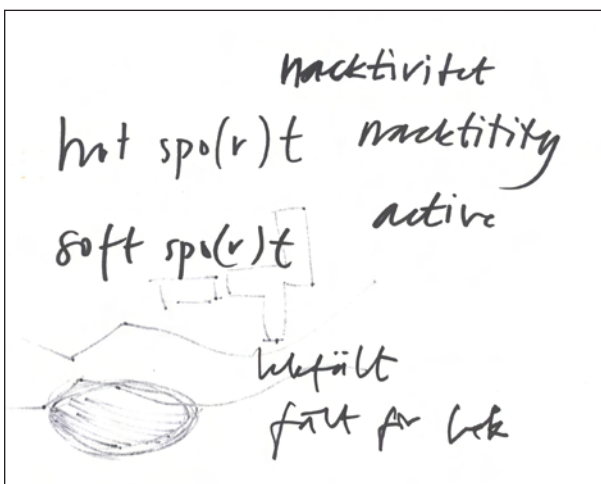 nacktivitet
hot spo(r)t nacktivity
active
soft spo(r)t
lekfält
fält för lek